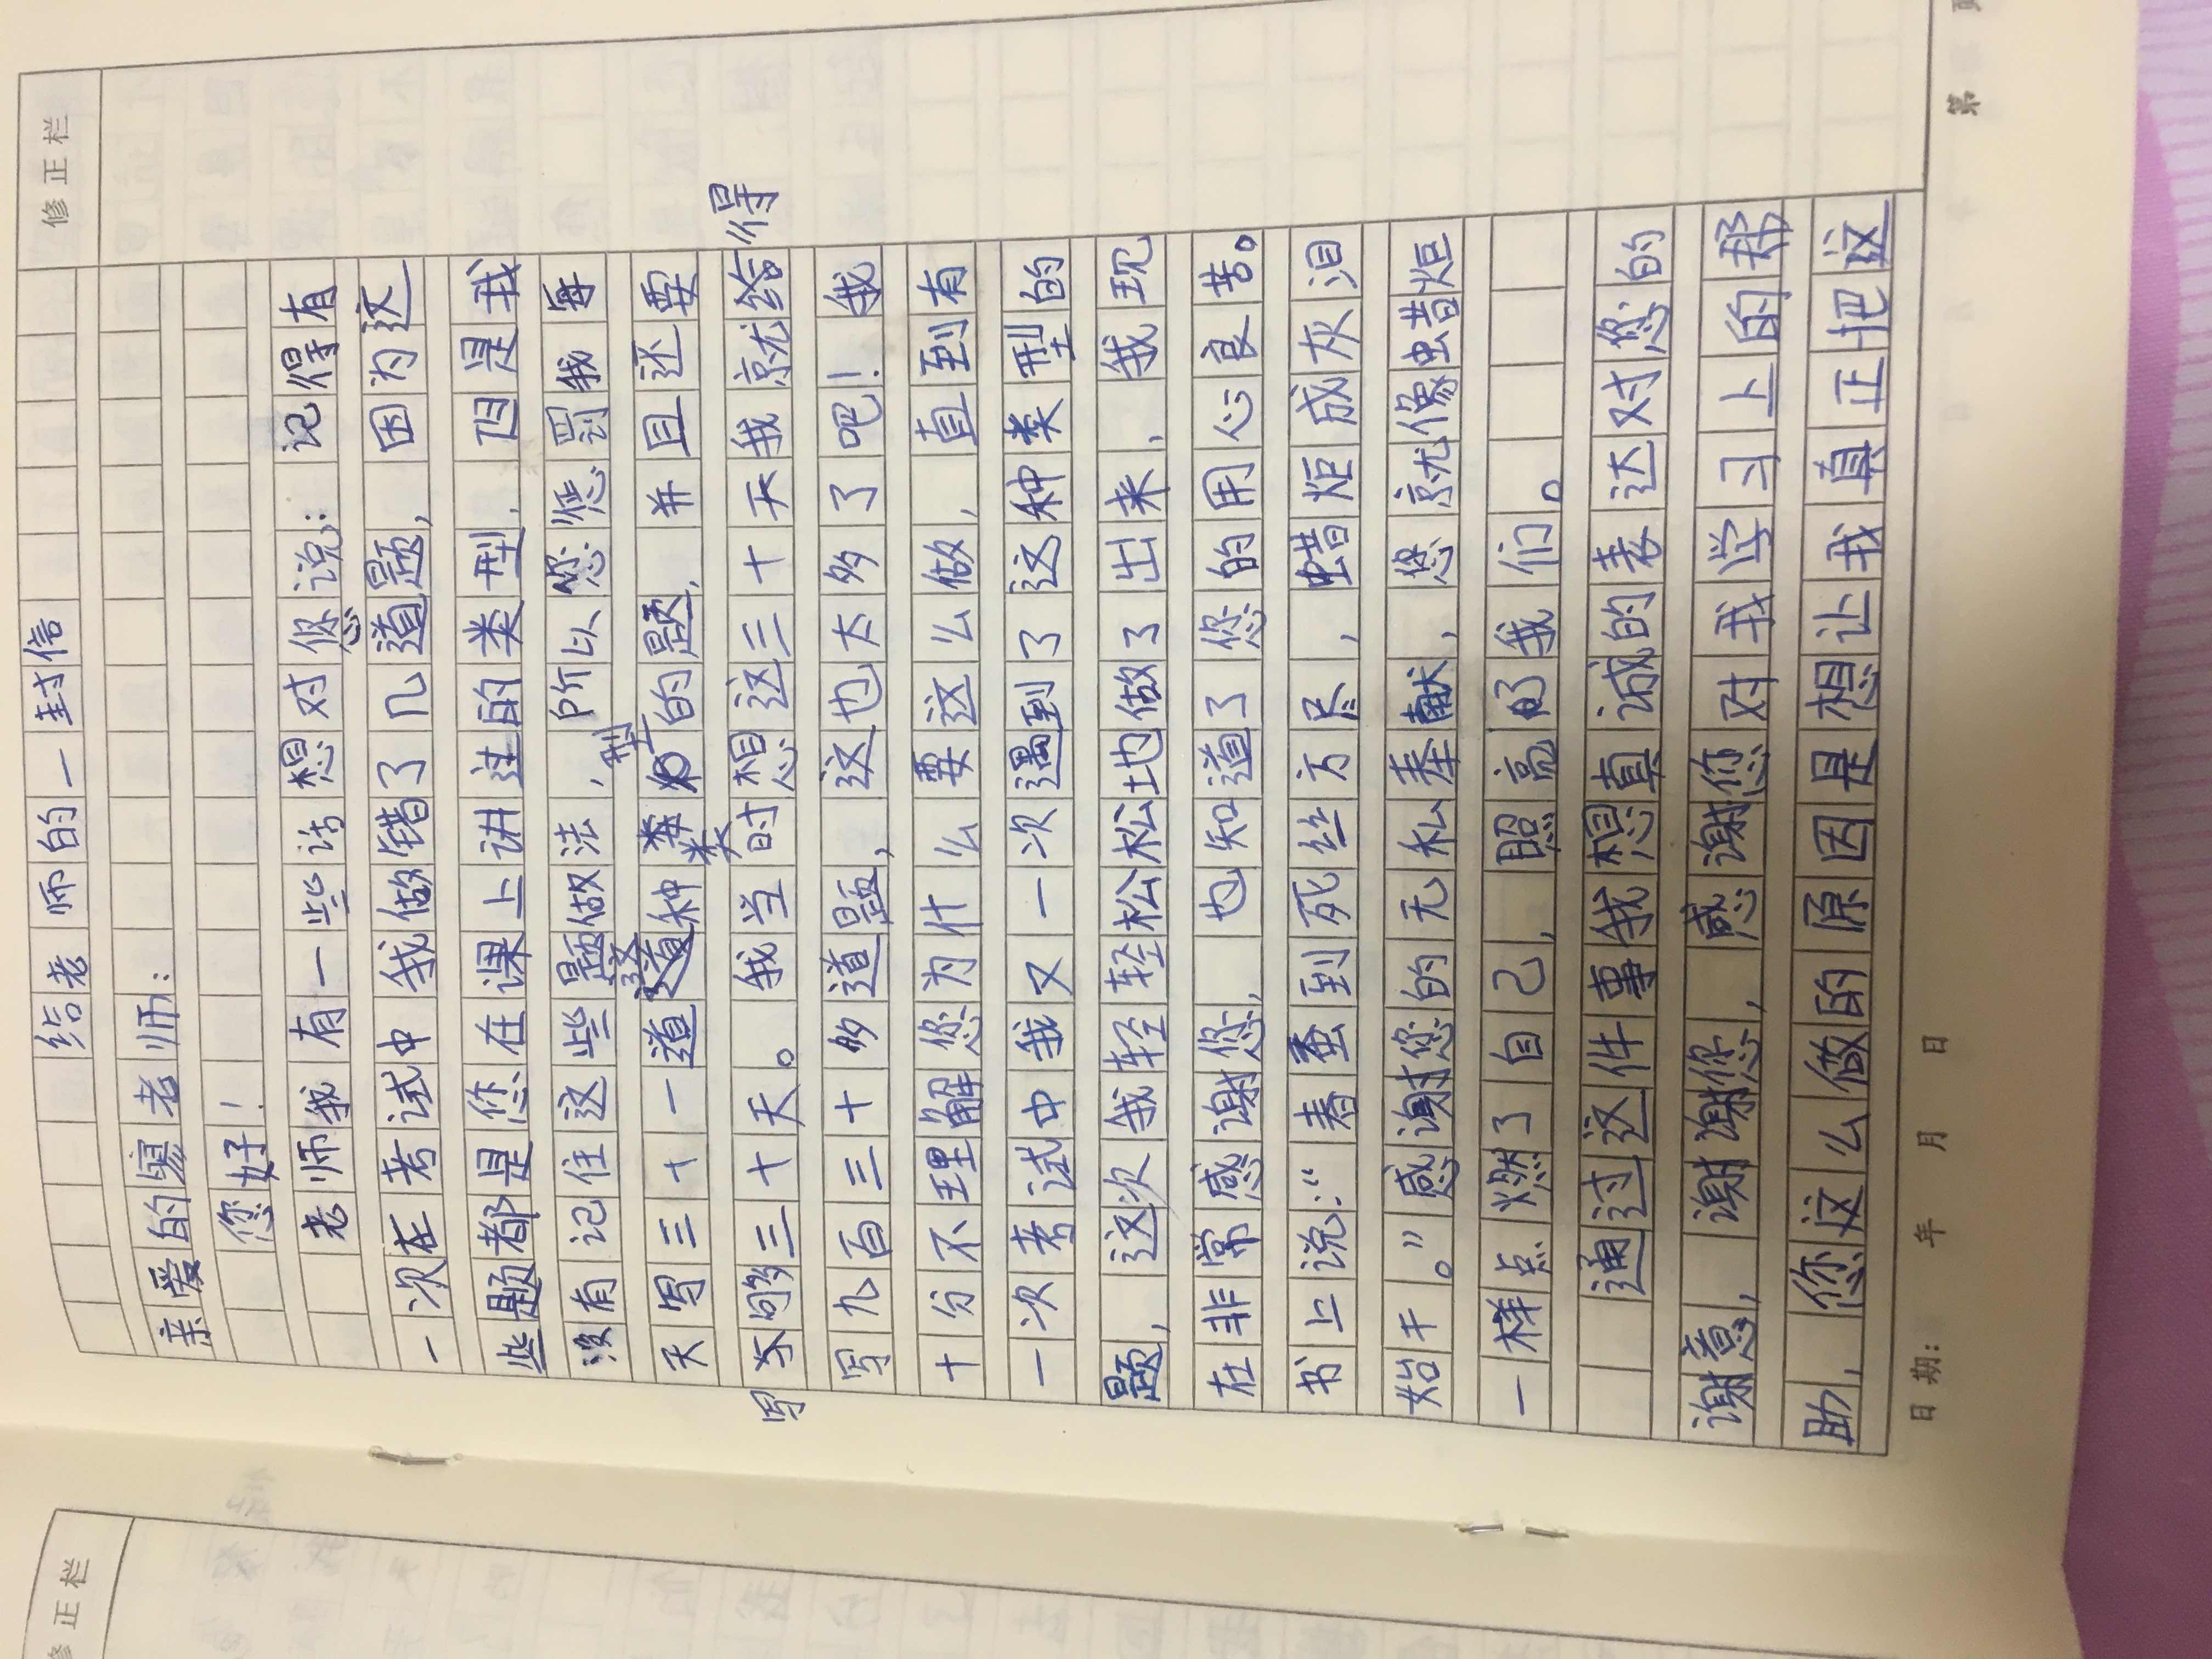 修正栏
给老师的一封信
亲爱的寥老师：
您好！
老师我有一些话想对您说：记得有
一次在考试中我做错了几道题，因为这
些题都是您在课上讲过的类型，但是我
没有记住这些题做法，所以您惩罚我每
天写三十一道这种类型的题，并且还要
写够三十天。我当时想这三十天我就给得
写九百三十多道题，这也太多了吧！我
十分不理解您为什么要这么做，直到有
一次考试中我又一次遇到了这种类型的
题，这次我轻轻松松地做了出来，我现
在非常感谢您，也知道了您的用心良苦。
书上说：“春蚕到死丝方尽，蜡炬成灰泪
始干。”感谢您的无私奉献，您就像蜡炬
一样点燃了自己，照亮了我们。
通过这件事我想真诚的表达对您的
谢意，谢谢您，感谢您对我学习上的帮
助，您这么做的原因是想让我真正把这
日期： 年 月 日
第 页
修正栏